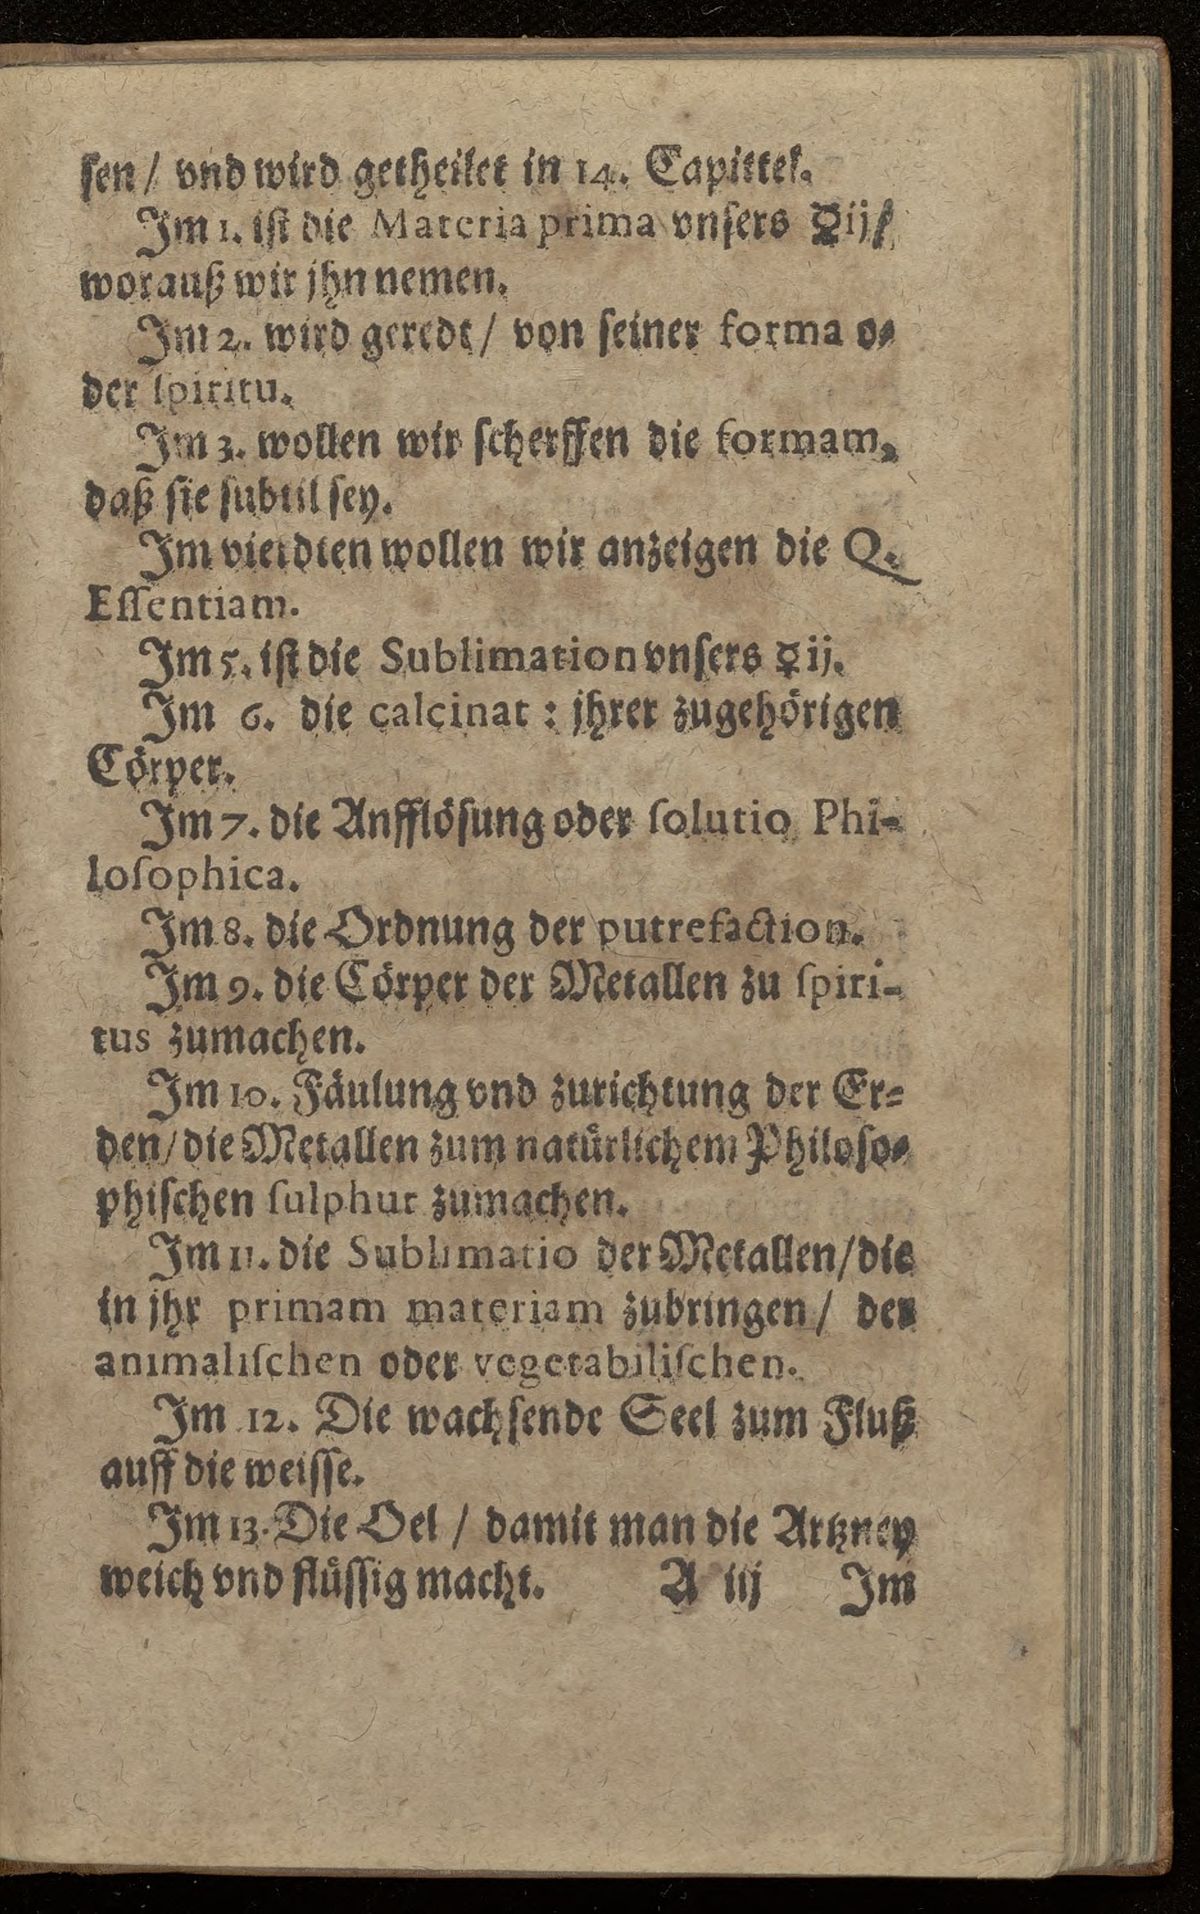 sen / vnd wird getheilet in 14. Capittel.
Im 1. ist die Materia prima vnsers ☿ij /
worauß wir jhn nemen.
Im 2. wird geredt / von seiner forma o⸗
der spiritu.
Im 3. wollen wir scherffen die formam,
daß sie subtil sey.
Im vierdten wollen wir anzeigen die Q.
Essentiam.
Im 5. ist die Sublimation vnsers ☿ij.
Im 6. die calcinat : jhrer zugehörigen
Cörper.
Im 7. die Anfflösung oder solutio Phi-
losophica.
Im 8. die Ordnung der putrefaction.
Im 9. die Cörper der Metallen zu spiri-
tus zumachen.
Im 10. Fäulung vnd zurichtung der Er⸗
den / die Metallen zum natürlichem Philoso⸗
phischen sulphur zumachen.
Im 11. die Sublimatio der Metallen / die
in jhr primam materiam zubringen / der
animalischen oder vegetabilischen.
Im 12. Die wachsende Seel zum Fluß
auff die weisse.
Im 13. Die Oel / damit man die Artzney
weich vnd flüssig macht. A iij Im